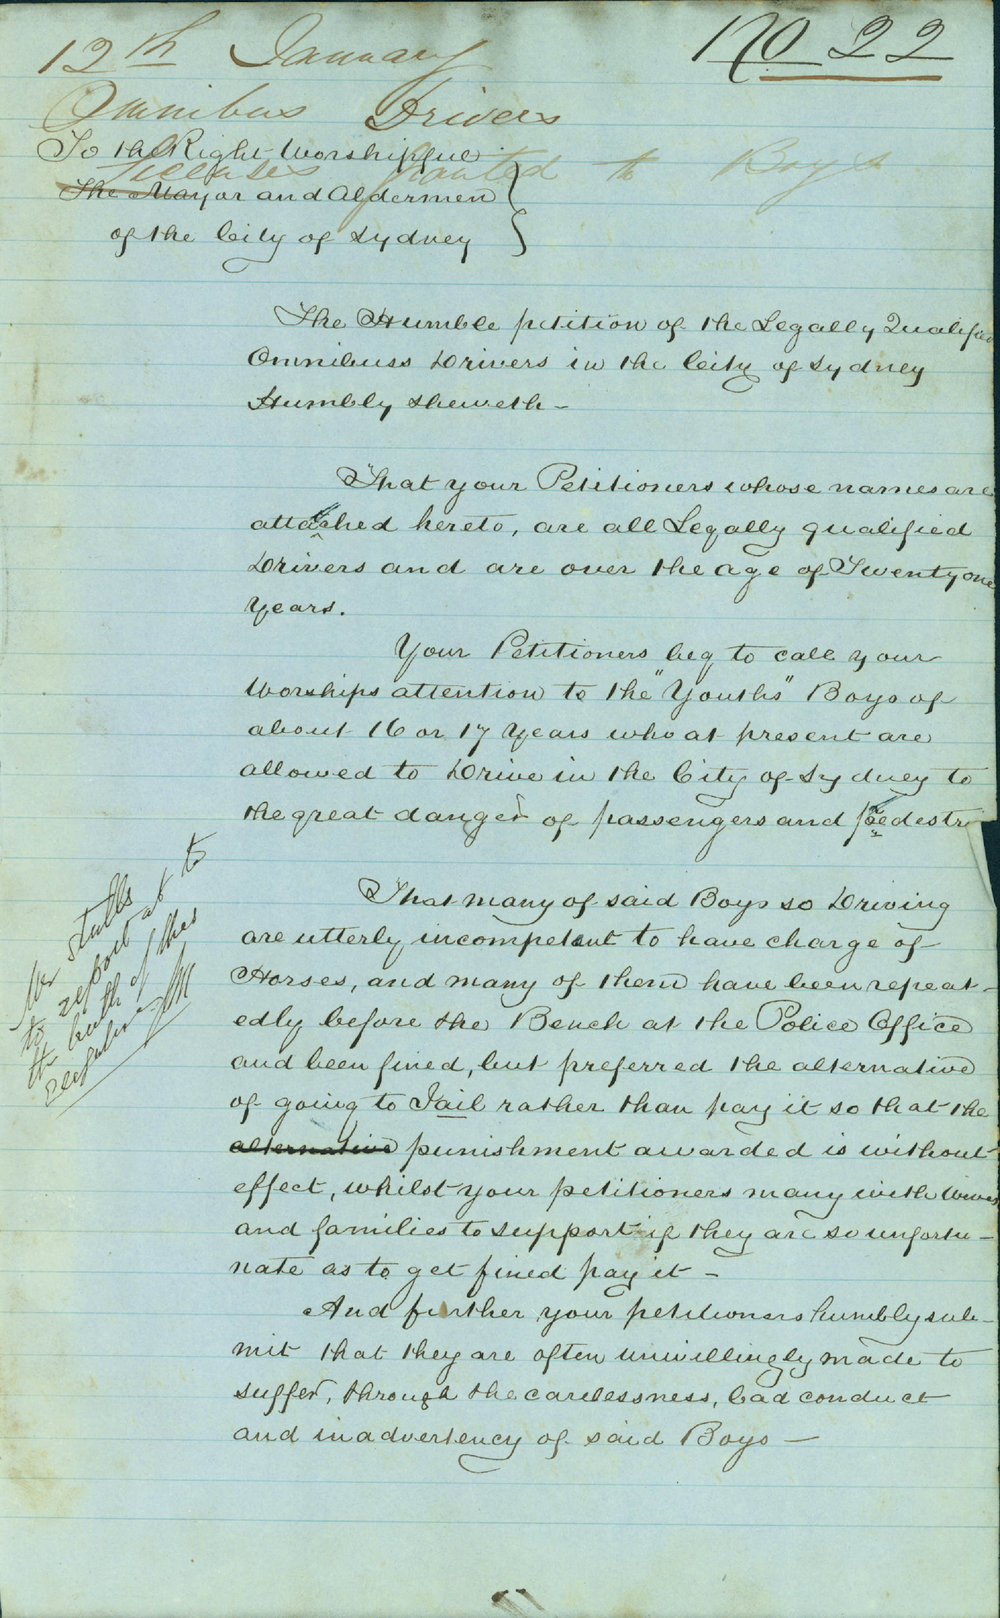 12th January
No 22
Omnibus Drivers
Licenses Granted to Boys
To the Right Worshipful
The Mayor and Aldermen
of the City of Sydney
The Humble petition of the Legally Qualified
Omnibuss Drivers in the City of Sydney
Humbly sheweth -
That your Petitioners whose names are
attached hereto, are all Legally qualified
Drivers and are over the age of Twenty one
Years.
Your Petitioners beg to call your
Worships attention to the "Youths" Boys of
about 16 or 17 Years who at present are
allowed to Drive in the City of Sydney to
the great danger of passengers and poedestr
That many of said Boys so Driving
are utterly incompetent to have charge of
Horses, and many of them have been repeat-
edly before the Bench at the Police Office
and been fined, but preferred the alternative
of going to Jail rather than pay it so that the
alternative punishment awarded is without
effect, whilst your petitioners many with Wives
and families to support if they are so unfortu-
nate as to get fined pay it -
And further your petitioners humbly sub-
mit that they are often unwillingly made to
suffer, through the carelessness, bad conduct
and inadvertency of said Boys -
Mr Stubbs
to report as to
the truth of this